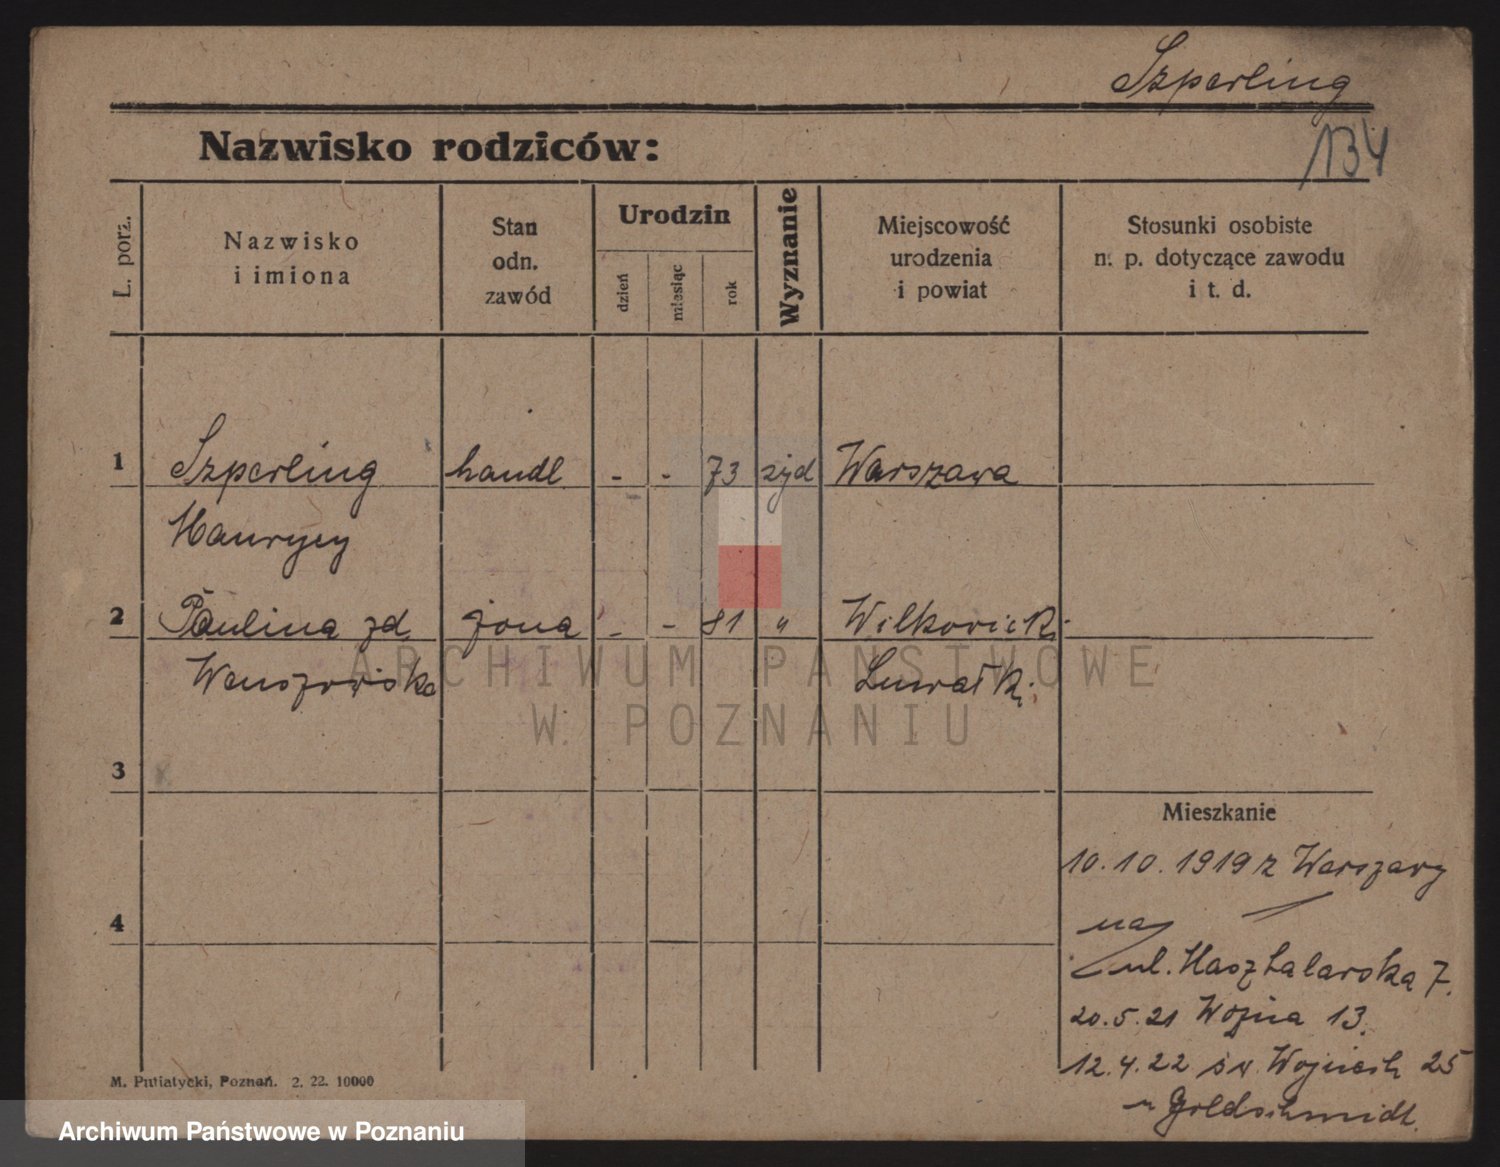 Szperling
Nazwisko rodziców:
134
L. porz.
Nazwisko
i imiona
Stan
odn.
zawód
Urodzin
dzień
miesiąc
rok
Wyznanie
Miejscowość
urodzenia
i powiat
Stosunki osobiste
n. p. dotyczące zawodu
i t. d.
1 Szperling handl - - 73 żyd Warszawa
Maurycy
2 Paulina zd. żona - - 81 " Wilkowiczki
Suwałki
3
Mieszkanie
10.10.1919 z Warszawy
na
4
ul. Masztalarska 7.
20.5.21 Woźna 13.
12.4.22 św. Wojciech 25
Goldschmidt.
M. Putiatycki, Poznań. 2. 22. 10000
ARCHIWUM PAŃSTWOWE
W POZNANIU
Archiwum Państwowe w Poznaniu